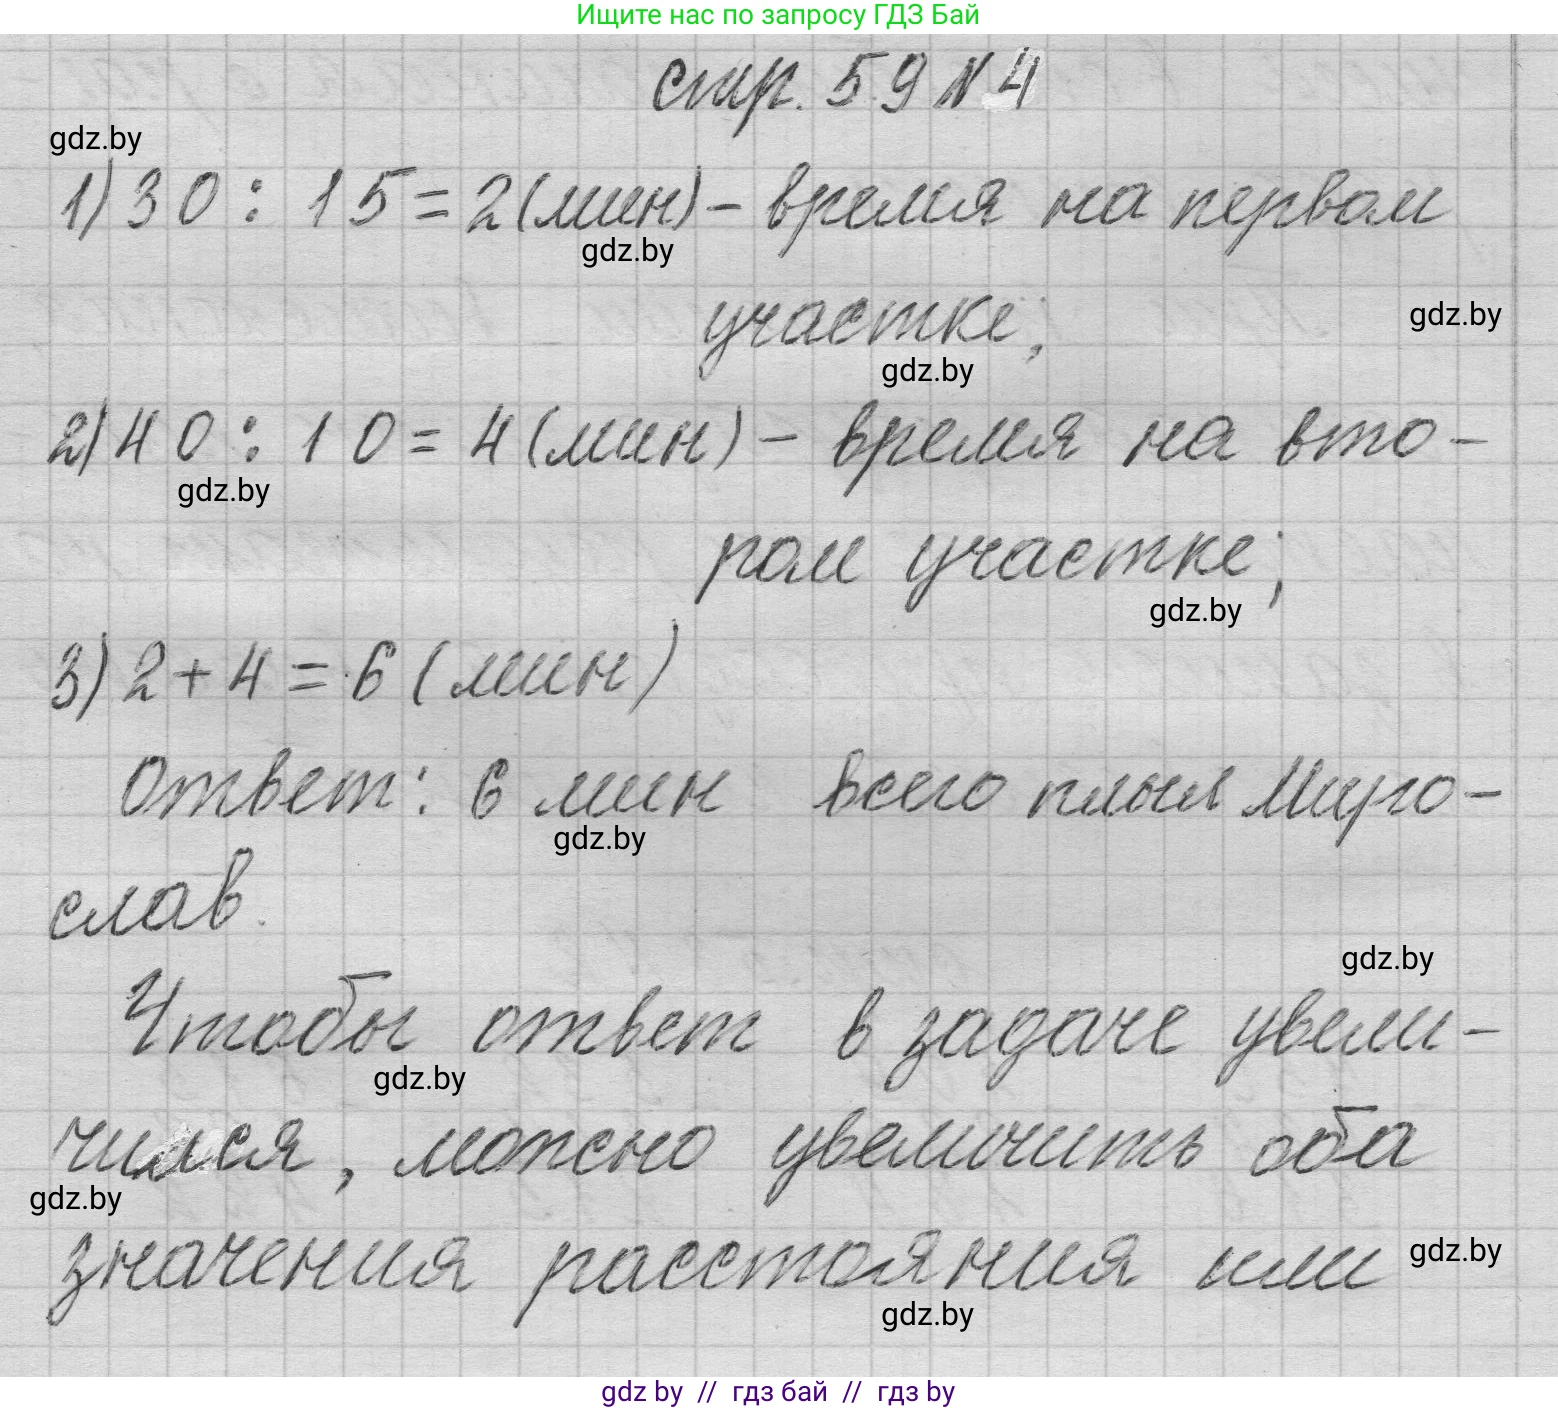 Ищите нас по запросу ГДЗ Бай
стр. 59 №4
gdz.by
1) 30 : 15 = 2 (мин) - время на первом
gdz.by
участке;
gdz.by
gdz.by
2) 40 : 10 = 4 (мин) - время на вто-
gdz.by
ром участке;
gdz.by
3) 2 + 4 = 6 (мин)
Ответ: 6 мин всего плыл Миро-
gdz.by
слав.
gdz.by
Чтобы ответ в задаче увели-
gdz.by
чился, можно увеличить оба
gdz.by
значения расстояния или
gdz.by
gdz.by
gdz by // гдз бай // гдз by